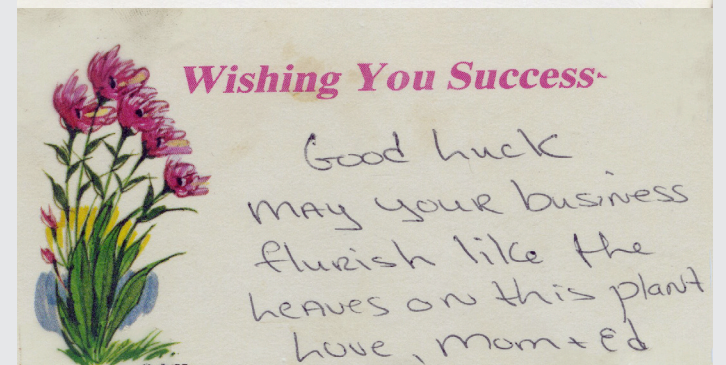 Wishing You Success~
Good Luck
MAY YOUR business
flurish like the
LEAVES ON this plant
Love, Mom + Ed